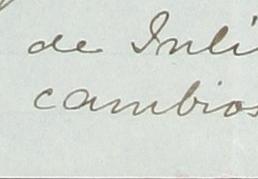 de Juli
cambios